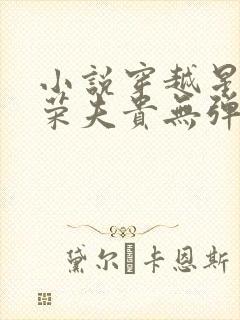 小說穿越星
榮夫貴無彈
黛尔 卡恩斯